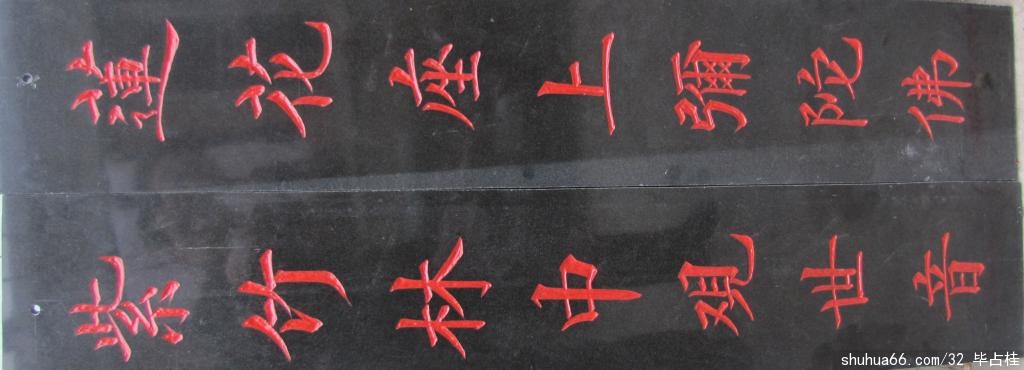 蓮花座上彌陀佛
紫竹林中观世音
shuhua66.com/32 毕占桂